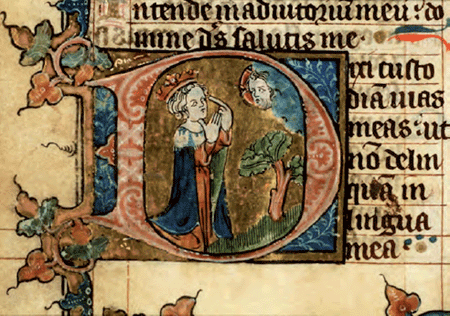 Intende in adiutoriū meū : do
mine d̄s salutis me ·
Dixi custo
diā uias
meas : ut
nō delin
quā in
lingua
mea ·